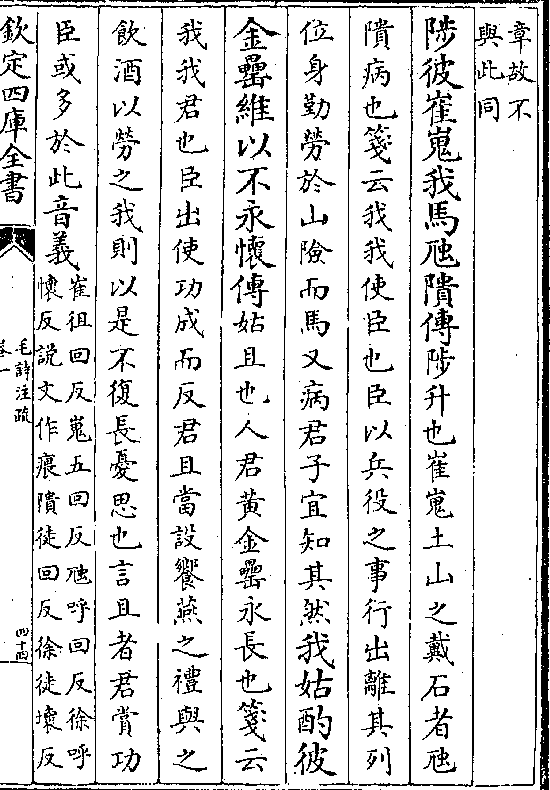 章故不
與此同
陟彼崔嵬我馬虺隤傳陟升也崔嵬土山之戴石者虺
隤病也箋云我我使臣也臣以兵役之事行出離其列
位身勤勞於山險而馬又病君子宜知其然我姑酌彼
金罍維以不永懷傳姑且也人君黃金罍永長也箋云
我我君也臣出使功成而反君且當設饗燕之禮與之
飲酒以勞之我則以是不復長憂思也言且者君賞功
臣或多於此音義
崔徂回反嵬五回反虺呼回反徐呼
懷反說文作㾯隤徒回反徐徒壞反
欽定四庫全書
毛詩注疏
卷一
四十四